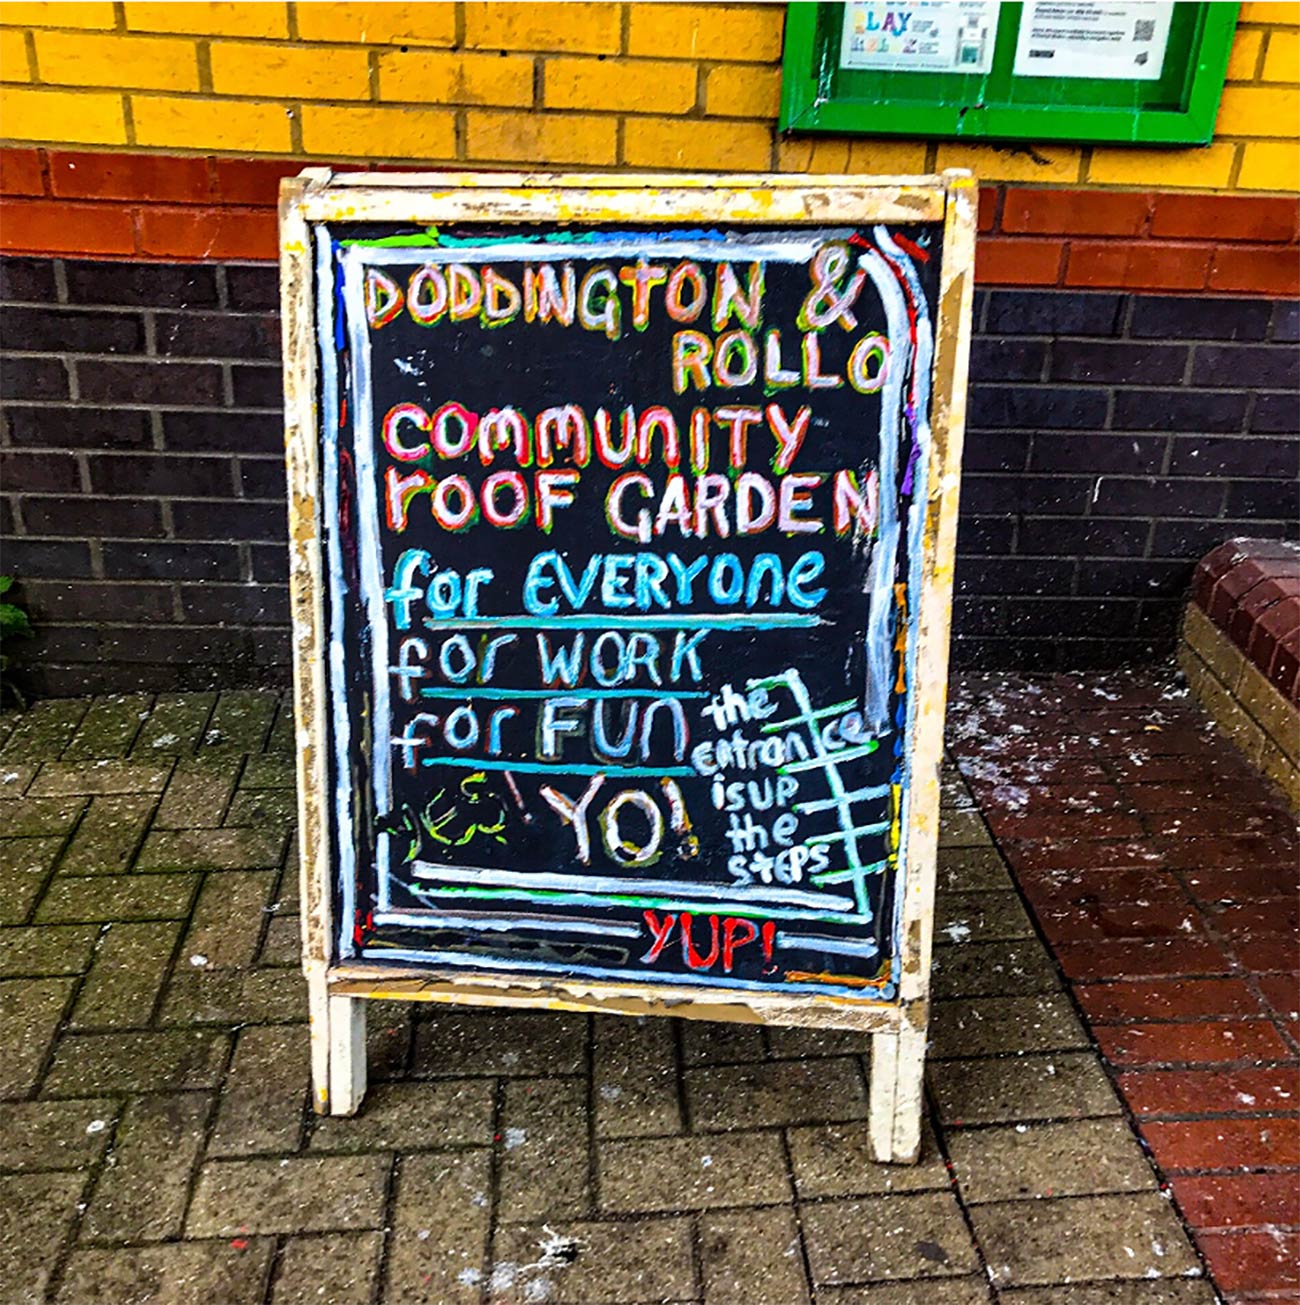 PLAY
DODDINGTON &
ROLLO
COMMUNITY
rOOF GARDEN
for EVERYOne
for WORK
for FUn
the
Entrance
is up
the
STEPS
YES! YO!
YUP!